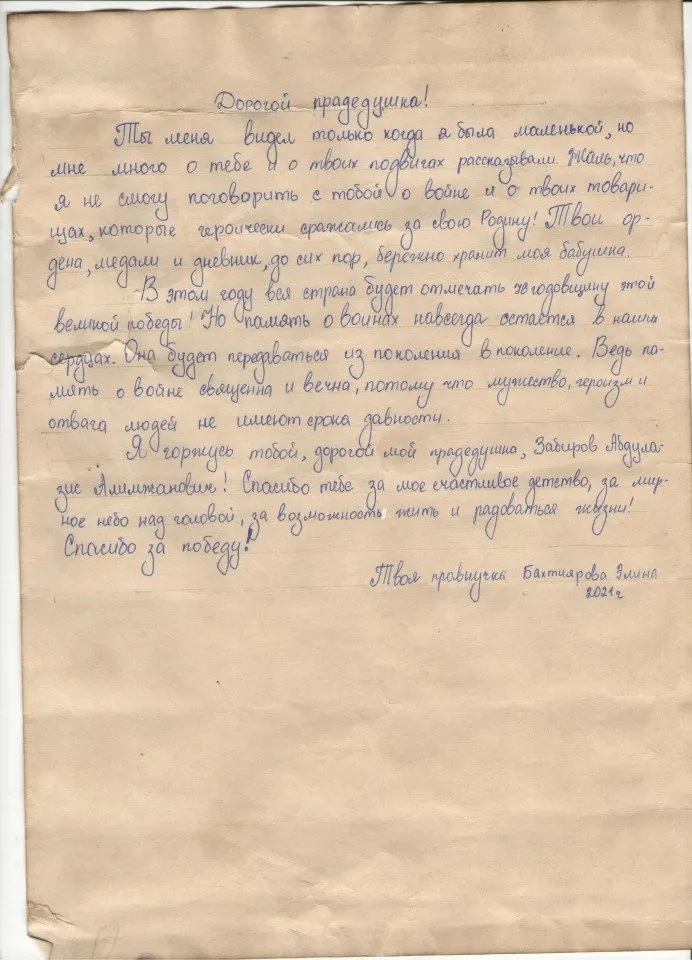 Дорогой прадедушка!
Ты меня видел только когда я была маленькой, но
мне много о тебе и о твоих подвигах рассказывали. Жаль, что
я не смогу поговорить с тобой о войне и о твоих товари-
щах, которые героически сражались за свою Родину! Твои ор-
дена, медали и дневник, до сих пор, бережно хранит моя бабушка.
В этом году вся страна будет отмечать годовщину этой
великой победы! Но память о воинах навсегда остается в наших
сердцах. Она будет передаваться из поколения в поколение. Ведь па-
мять о войне священна и вечна, потому что мужество, героизм и
отвага людей не имеют срока давности.
Я горжусь тобой, дорогой мой прадедушка, Забиров Абдула-
зис Алимжанович! Спасибо тебе за мое счастливое детство, за мир-
ное небо над головой, за возможность жить и радоваться жизни!
Спасибо за победу!
Твоя правнучка Бахтиярова Элина
2021г